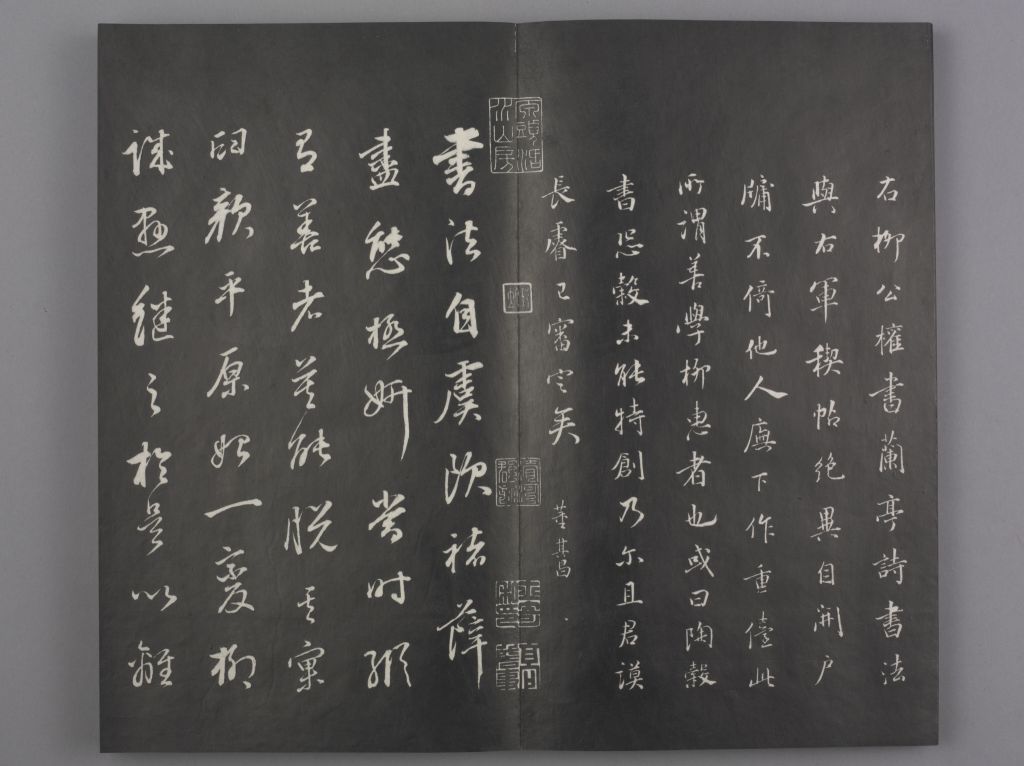 右柳公權書蘭亭詩書法
與右軍稧帖絕異自開戶
牖不倚他人廡下作重儓此
所謂善學柳惠者也或曰陶穀
書恐穀未能特創乃尔且君謨
長睿已審定矣
董其昌
書法自虞歐褚薛
盡態極妍當时縱
有善者莫能脫其窠
臼顏平原始一變柳
誠懸繼之於是以離